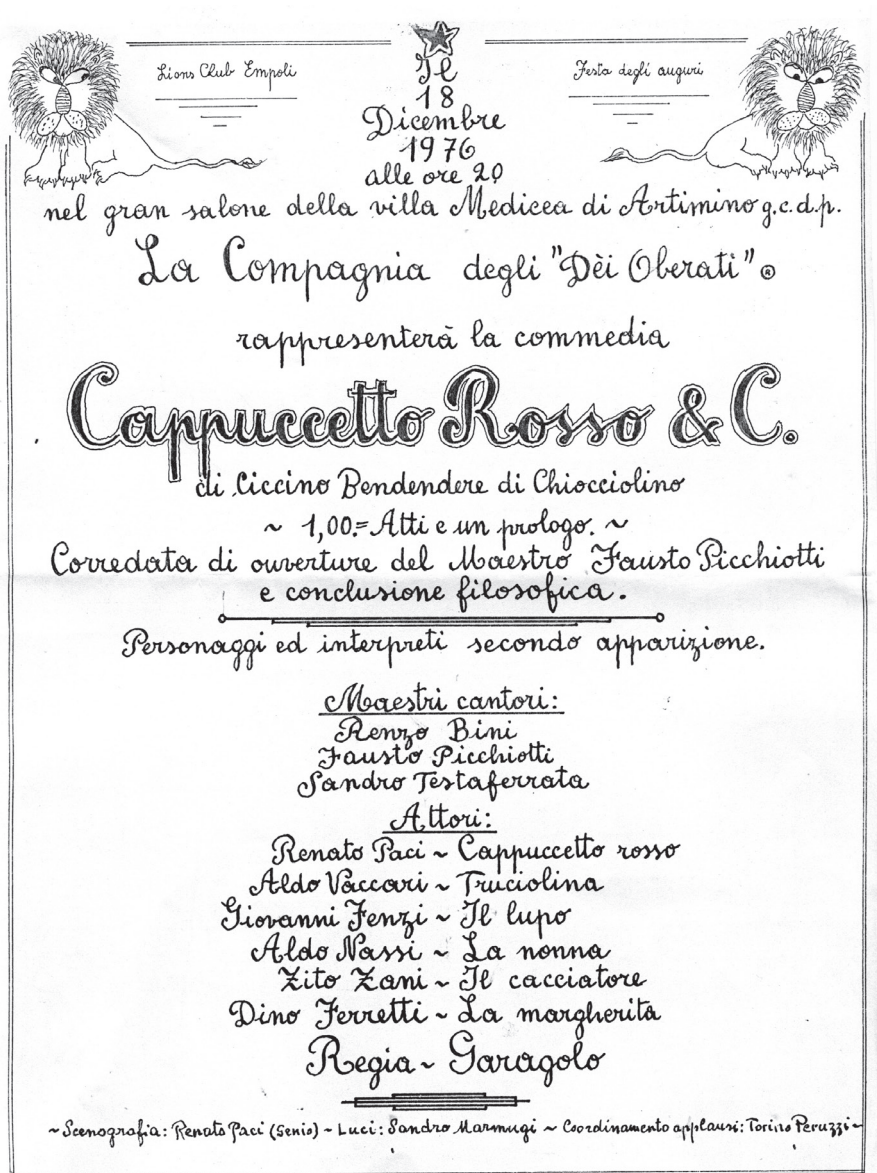 Lions Club Empoli
Festa degli auguri
Il
18
Dicembre
1976
alle ore 20
nel gran salone della villa Medicea di Artimino g.c.d.p.
La Compagnia degli "Dèi Oberati" ®
rappresenterà la commedia
Cappuccetto Rosso & C.
di Ciccino Bendendere di Chiocciolino
~ 1,00.= Atti e un prologo. ~
Corredata di ouverture del Maestro Fausto Picchiotti
e conclusione filosofica.
Personaggi ed interpreti secondo apparizione.
Maestri cantori:
Renzo Bini
Fausto Picchiotti
Sandro Testaferrata
Attori:
Renato Paci ~ Cappuccetto rosso
Aldo Vaccari ~ Truciolina
Giovanni Fenzi ~ Il lupo
Aldo Nassi ~ La nonna
Zito Zani ~ Il cacciatore
Dino Ferretti ~ La margherita
Regia ~ Garagolo
~ Scenografia: Renato Paci (Senio) ~ Luci: Sandro Marmugi ~ Coordinamento applausi: Torino Peruzzi ~